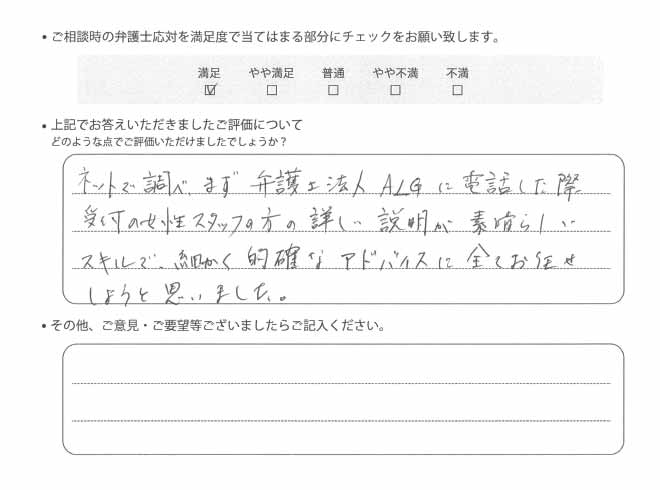 • ご相談時の弁護士応対を満足度で当てはまる部分にチェックをお願い致します。
満足 やや満足 普通 やや不満 不満
☑ □ □ □ □
• 上記でお答えいただきましたご評価について
どのような点でご評価いただけましたでしょうか？
ネットで調べ、まず弁護士法人ALGに電話した際
受付の女性スタッフの方の詳しい説明が素晴らしい
スキルで、細かく的確なアドバイスに全てお任せ
しようと思いました。
• その他、ご意見・ご要望等ございましたらご記入ください。